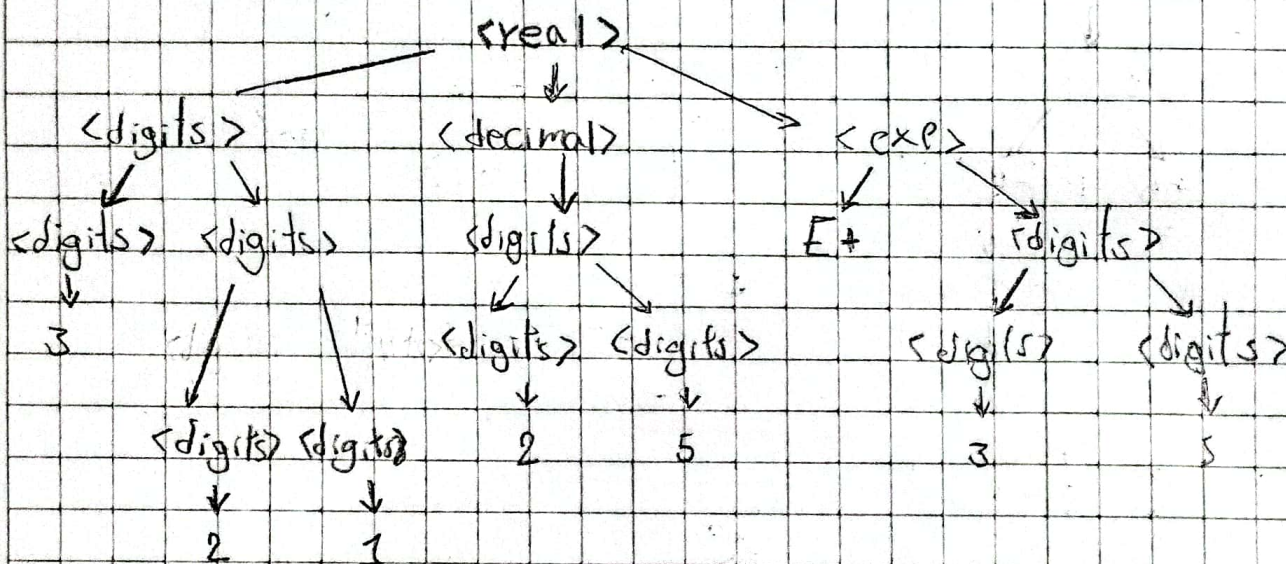 <real>
<digits> <decimal> <exp>
<digits> <digits> <digits> E+ <digits>
3 <digits> <digits> <digits> <digits>
<digits> <digits> 2 5 3 5
2 1